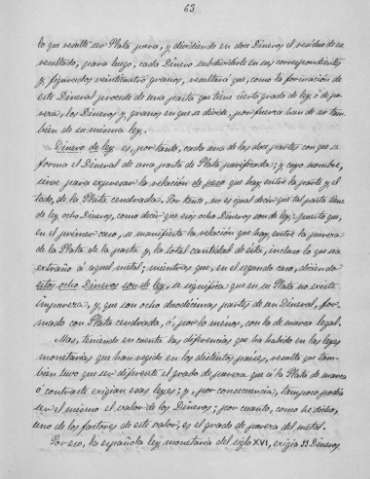 63
lo que resulte ser Plata pura, y dividiendo en doce Dineros el residuo de su
resultado, para luego, cada Dinero subdividirle en sus correspondientes
y figurados veinticuatro granos, resultará que, como la formación de
este Dineral procede de una pasta que tiene cierto grado de ley ó de pu-
reza, los Dineros y granos en que se divide, por fuerza han de ser tam-
bien de su misma ley.
Dinero de ley es, por tanto, cada una de las doce partes con que se
forma el Dineral de una pasta de Plata purificada; y cuyo nombre,
sirve para expresar la relación de peso que hay entre la parte y el
todo, de la Plata cendrada. Por tanto, no es igual decir que tal pasta tiene
de ley ocho Dineros, como decir que esos ocho Dineros son de ley: puesto que,
en el primer caso, se manifiesta la relación que hay, entre la pureza
de la Plata de la pasta y la total cantidad de ésta, incluso lo que sea
extraño á aquel metal; mientras que, en el segundo caso, diciendo
estos ocho Dineros son de ley, se significa que en su Plata no existe
impureza, y que son ocho duodécimas partes de un Dineral, for-
mado con Plata cendrada, ó, por lo menos, con la de marca legal.
Mas, teniendo en cuenta las diferencias que ha habido en las leyes
monetarias que han regido en los distintos países, resulta que tam-
bien tuvo que ser diferente el grado de pureza que á la Plata de marca
ó contraste exigían esas leyes; y, por consecuencia, tampoco podía
ser el mismo el valor de los Dineros; por cuanto, como he dicho,
uno de los factores de este valor, es el grado de pureza del metal.
Por eso, la española ley monetaria del siglo XVI, exigía 11 Dineros